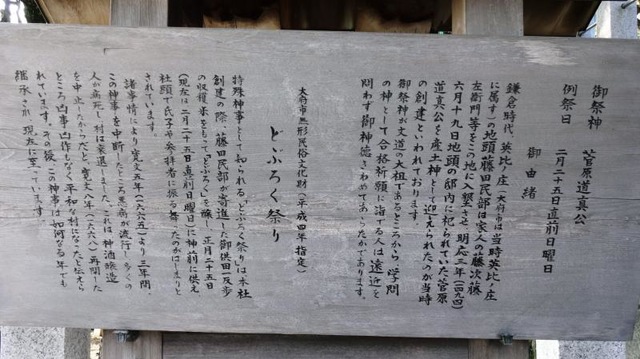 御祭神 菅原道真公
例祭日 二月二十五日直前日曜日
御由緒
鎌倉時代、英比ノ庄(大府市は当時英比ノ庄
に属す)の地頭藤田民部は家人の藤次藤
左衛門等とこの地に入墾され 明応三年(一四九四)
六月十九日地頭の邸内に祀られていた菅原
道真公を産土神として迎えられたのが当時
の創建といわれております。
御祭神が文道の祖であるところから「学問
の神」として合格祈願に詣でる人は遠近と
問わず御神徳さわめてあらたかであります。
大府市無形民俗文化財(平成四年指定)
どぶろく祭り
特殊神事として知られる「どぶろく祭り」は、本社
創建の際、藤田民部が寄進した御供田一反歩
の収穫米をもって「どぶろく」を醸し、正月二十五日
(現在は二月二十五日直前日曜日)に神前に供え
社頭で氏子や参拝者に振る舞ったのがはじまりと
されています。
諸事情により寛文五年(一六六五)より三年間、
この神事を中断したところ悪病が流行し多くの
人が病死し村は衰退しました。これは神酒醸造
を中止したからだと、寛文八年(一六六八)再開した
ところ凶事凶作もなく平和な村になったと伝えら
れています。その後この神事は如何なる年でも
継承され、現在に至っています。